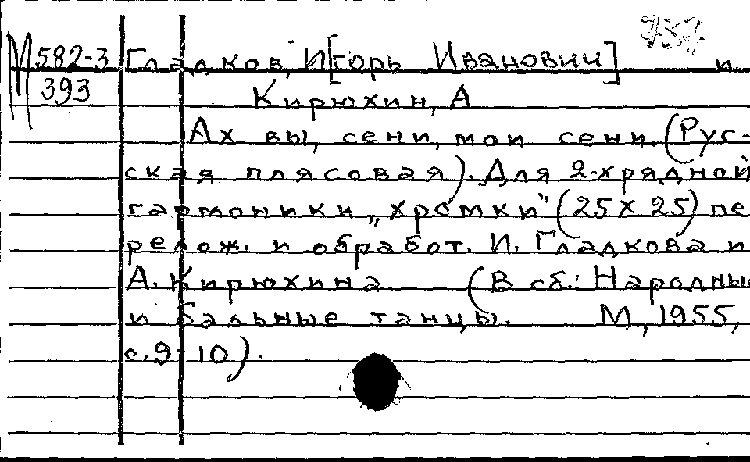 М 582-3 Гладков, И[горь Иванович] и
393 Кирюхин, А
Ах вы, сени, мои сени. (Рус-
ская плясовая). Для 2-хрядной
гармоники „хромки" (25 х 25) пе
релож. и обработ. И. Гладкова и
А. Кирюхина (В сб.: Народны
и бальные танцы. М, 1955,
с. 9-10).